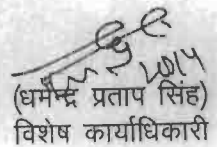 (धर्मेन्द्र प्रताप सिंह)
विशेष कार्याधिकारी